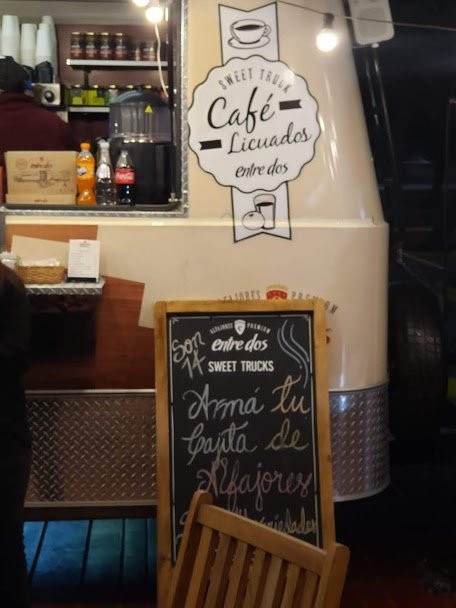 SWEET TRUCK
Café
Licuados
entre dos
ALFAJORES PREMIUM
ALFAJORES PREMIUM
entre dos
SWEET TRUCKS
Son
14
Armá tu
Cajita de
Alfajores
variedades